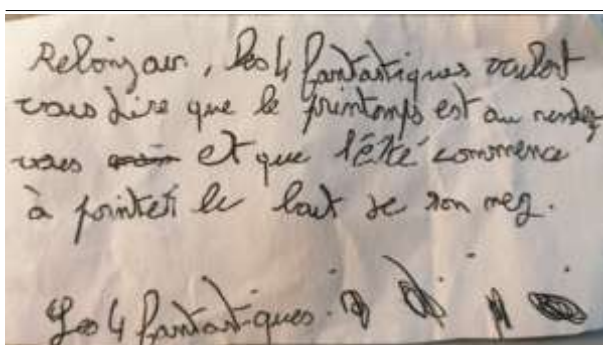 Rebonjour, les 4 fantastiques veulent
vous dire que le printemps est au rendez
vous et que l'été commence
à pointer le bout de son nez.
Les 4 fantastiques.